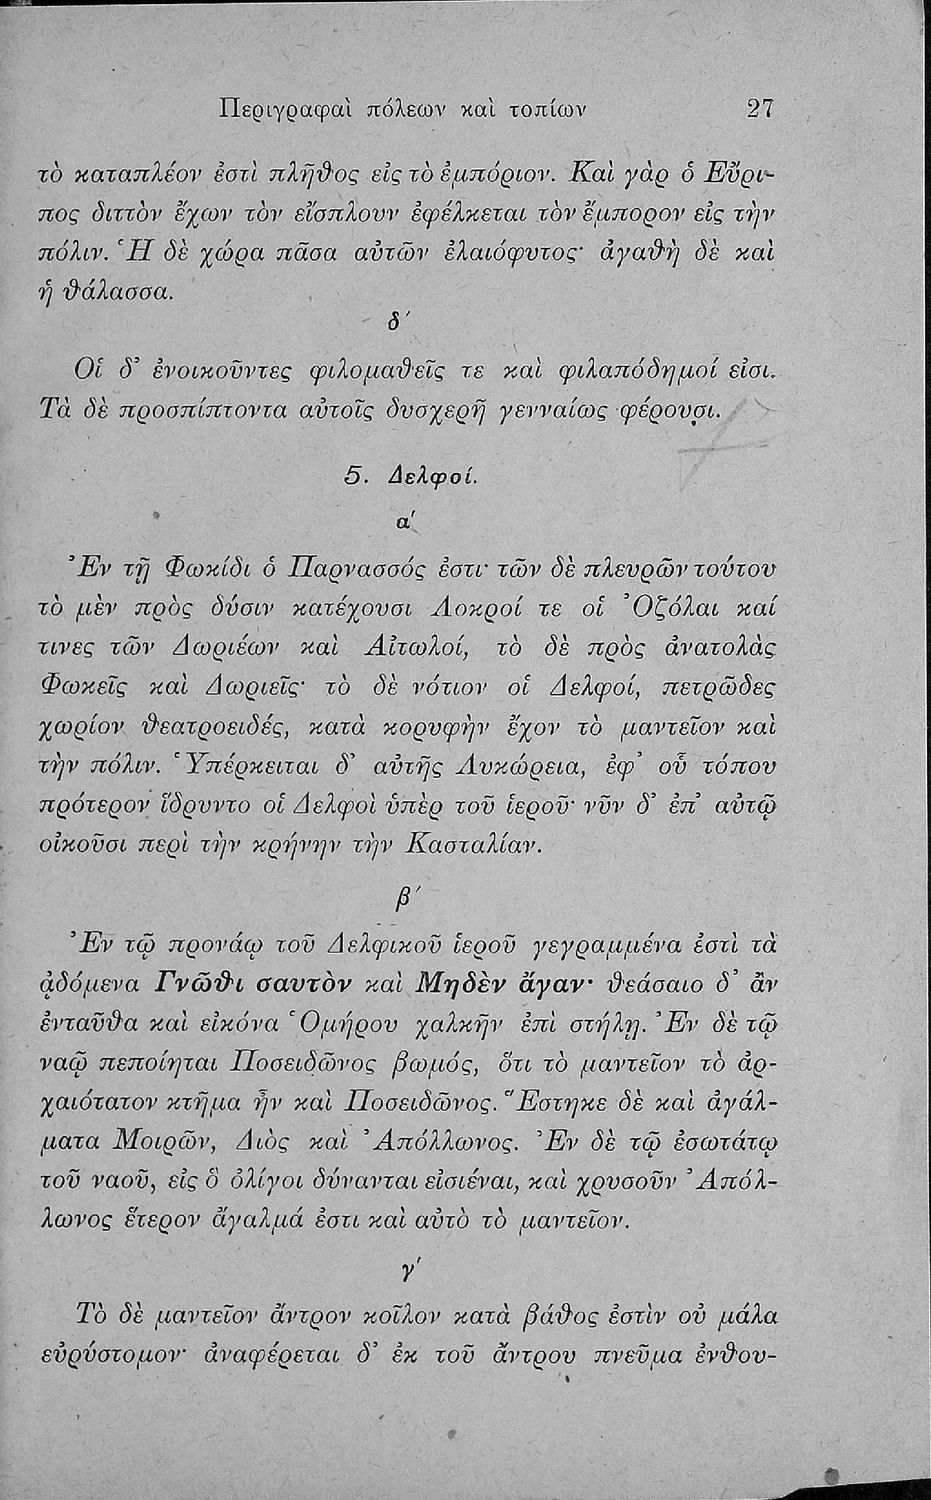 Περιγραφαὶ πόλεων καὶ τοπίων 27
τὸ καταπλέον ἐστὶ πλῆθος εἰς τὸ ἐμπόριον. Καὶ γὰρ ὁ Εὔρι-
πος διττὸν ἔχων τὸν εἴσπλουν ἐφέλκεται τὸν ἔμπορον εἰς τὴν
πόλιν. Ἡ δὲ χώρα πᾶσα αὐτῶν ἐλαιόφυτος· ἀγαθὴ δὲ καὶ
ἡ θάλασσα.
δ΄
Οἱ δ’ ἐνοικοῦντες φιλομαθεῖς τε καὶ φιλαπόδημοί εἰσι.
Τὰ δὲ προσπίπτοντα αὐτοῖς δυσχερῆ γενναίως φέρουσι.
5. Δελφοί.
α΄
Ἐν τῇ Φωκίδι ὁ Παρνασσός ἐστι· τῶν δὲ πλευρῶν τούτου
τὸ μὲν πρὸς δύσιν κατέχουσι Λοκροί τε οἱ Ὀζόλαι καί
τινες τῶν Δωριέων καὶ Αἰτωλοί, τὸ δὲ πρὸς ἀνατολὰς
Φωκεῖς καὶ Δωριεῖς· τὸ δὲ νότιον οἱ Δελφοί, πετρῶδες
χωρίον θεατροειδές, κατὰ κορυφὴν ἔχον τὸ μαντεῖον καὶ
τὴν πόλιν. Ὑπέρκειται δ’ αὐτῆς Λυκώρεια, ἐφ’ οὗ τόπου
πρότερον ἵδρυντο οἱ Δελφοὶ ὑπὲρ τοῦ ἱεροῦ· νῦν δ’ ἐπ’ αὐτῷ
οἰκοῦσι περὶ τὴν κρήνην τὴν Κασταλίαν.
β΄
Ἐν τῷ προνάῳ τοῦ Δελφικοῦ ἱεροῦ γεγραμμένα ἐστὶ τὰ
ᾀδόμενα Γνῶθι σαυτὸν καὶ Μηδὲν ἄγαν· θεάσαιο δ’ ἂν
ἐνταῦθα καὶ εἰκόνα Ὁμήρου χαλκῆν ἐπὶ στήλῃ. Ἐν δὲ τῷ
ναῷ πεποίηται Ποσειδῶνος βωμός, ὅτι τὸ μαντεῖον τὸ ἀρ-
χαιότατον κτῆμα ἦν καὶ Ποσειδῶνος. Ἕστηκε δὲ καὶ ἀγάλ-
ματα Μοιρῶν, Διὸς καὶ Ἀπόλλωνος. Ἐν δὲ τῷ ἐσωτάτῳ
τοῦ ναοῦ, εἰς ὃ ὀλίγοι δύνανται εἰσιέναι, καὶ χρυσοῦν Ἀπόλ-
λωνος ἕτερον ἄγαλμά ἐστι καὶ αὐτὸ τὸ μαντεῖον.
γ΄
Τὸ δὲ μαντεῖον ἄντρον κοῖλον κατὰ βάθος ἐστὶν οὐ μάλα
εὐρύστομον· ἀναφέρεται δ’ ἐκ τοῦ ἄντρου πνεῦμα ἐνθου-